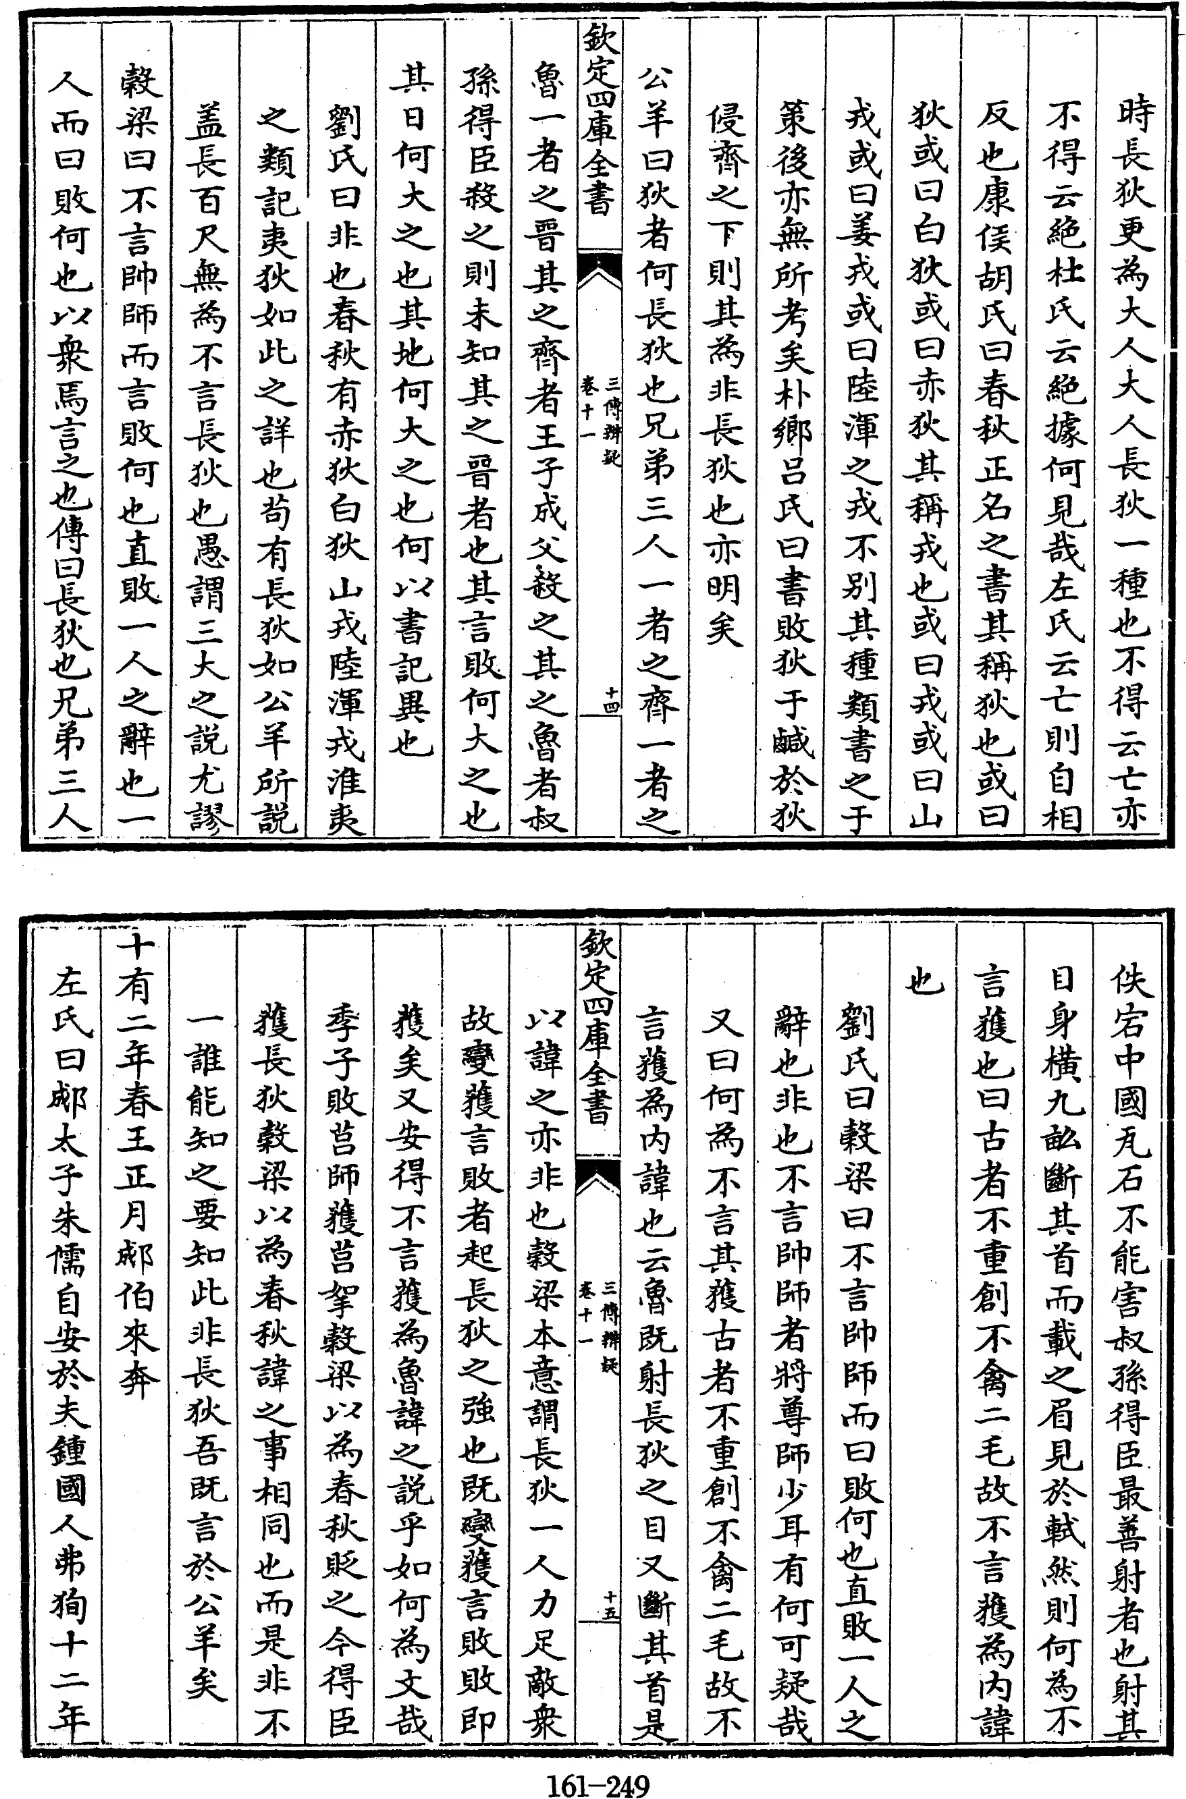 時長狄更為大人大人長狄一種也不得云亡亦
不得云絶杜氏云絶據何見哉左氏云亡則自相
反也康侯胡氏曰春秋正名之書其稱狄也或曰
狄或曰白狄或曰赤狄其稱戎也或曰戎或曰山
戎或曰姜戎或曰陸渾之戎不別其種類書之于
策後亦無所考矣朴鄉呂氏曰書敗狄于鹹於狄
侵齊之下則其為非長狄也亦明矣
公羊曰狄者何長狄也兄弟三人一者之齊一者之
欽定四庫全書
三傳辨疑
卷十一
十四
魯一者之晉其之齊者王子成父殺之其之魯者叔
孫得臣殺之則未知其之晉者也其言敗何大之也
其日何大之也其地何大之也何以書記異也
劉氏曰非也春秋有赤狄白狄山戎陸渾戎淮夷
之類記夷狄如此之詳也茍有長狄如公羊所說
盖長百尺無為不言長狄也愚謂三大之說尤謬
穀梁曰不言帥師而言敗何也直敗一人之辭也一
人而曰敗何也以衆焉言之也傳曰長狄也兄弟三人
佚宕中國瓦石不能害叔孫得臣最善射者也射其
目身横九畝斷其首而載之眉見於軾然則何為不
言獲也曰古者不重創不禽二毛故不言獲為内諱
也
劉氏曰穀梁曰不言帥師而曰敗何也直敗一人之
辭也非也不言帥師者將尊師少耳有何可疑哉
又曰何為不言其獲古者不重創不禽二毛故不
言獲為内諱也云魯既射長狄之目又斷其首是
欽定四庫全書
三傳辨疑
卷十一
十五
以諱之亦非也穀梁本意謂長狄一人力足敵衆
故變獲言敗者起長狄之强也既變獲言敗敗即
獲矣又安得不言獲為魯諱之說乎如何為文哉
季子敗莒師獲莒挐穀梁以為春秋貶之今得臣
獲長狄穀梁以為春秋諱之事相同也而是非不
一誰能知之要知此非長狄吾既言於公羊矣
十有二年春王正月郕伯來奔
左氏曰郕太子朱儒自安於夫鍾國人弗狥十二年
161-249